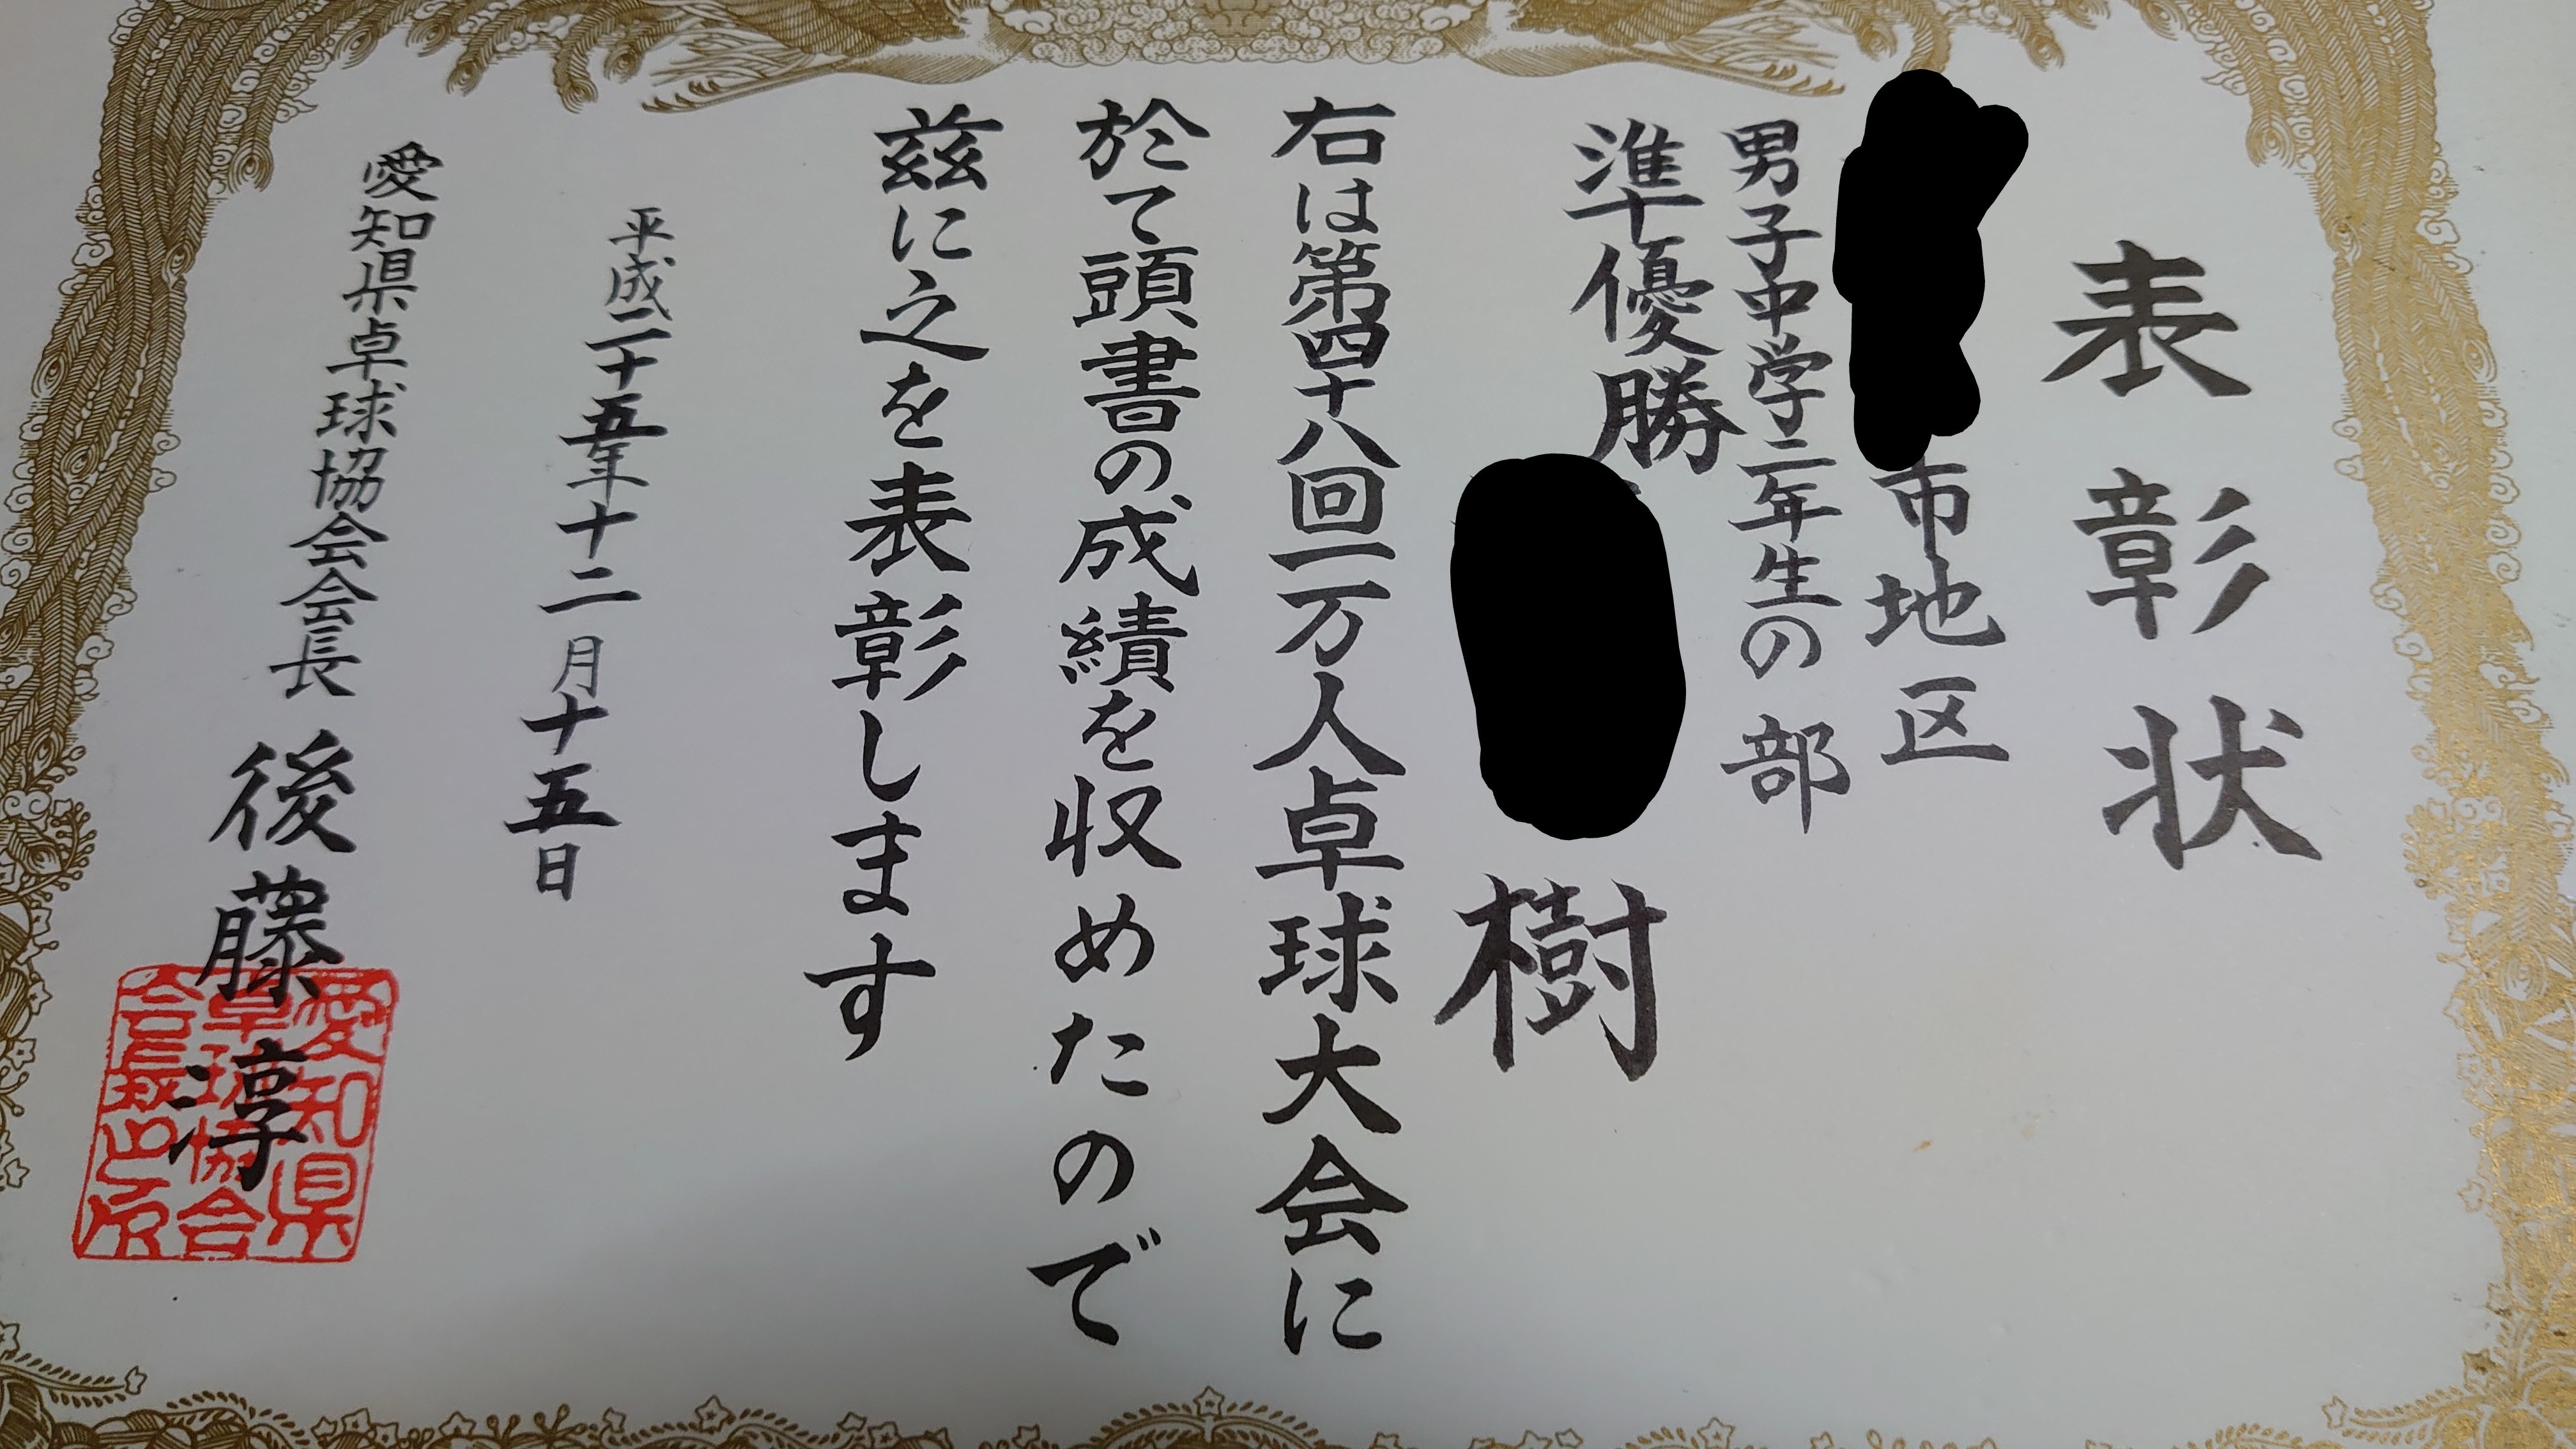 表彰状
市地区
男子中学二年生の部
準優勝
樹
右は第四十八回一万人卓球大会に
於て頭書の成績を収めたので
茲に之を表彰します
平成二十五年十二月十五日
愛知県卓球協会会長 後藤淳
愛知県
卓球協会
会長之印